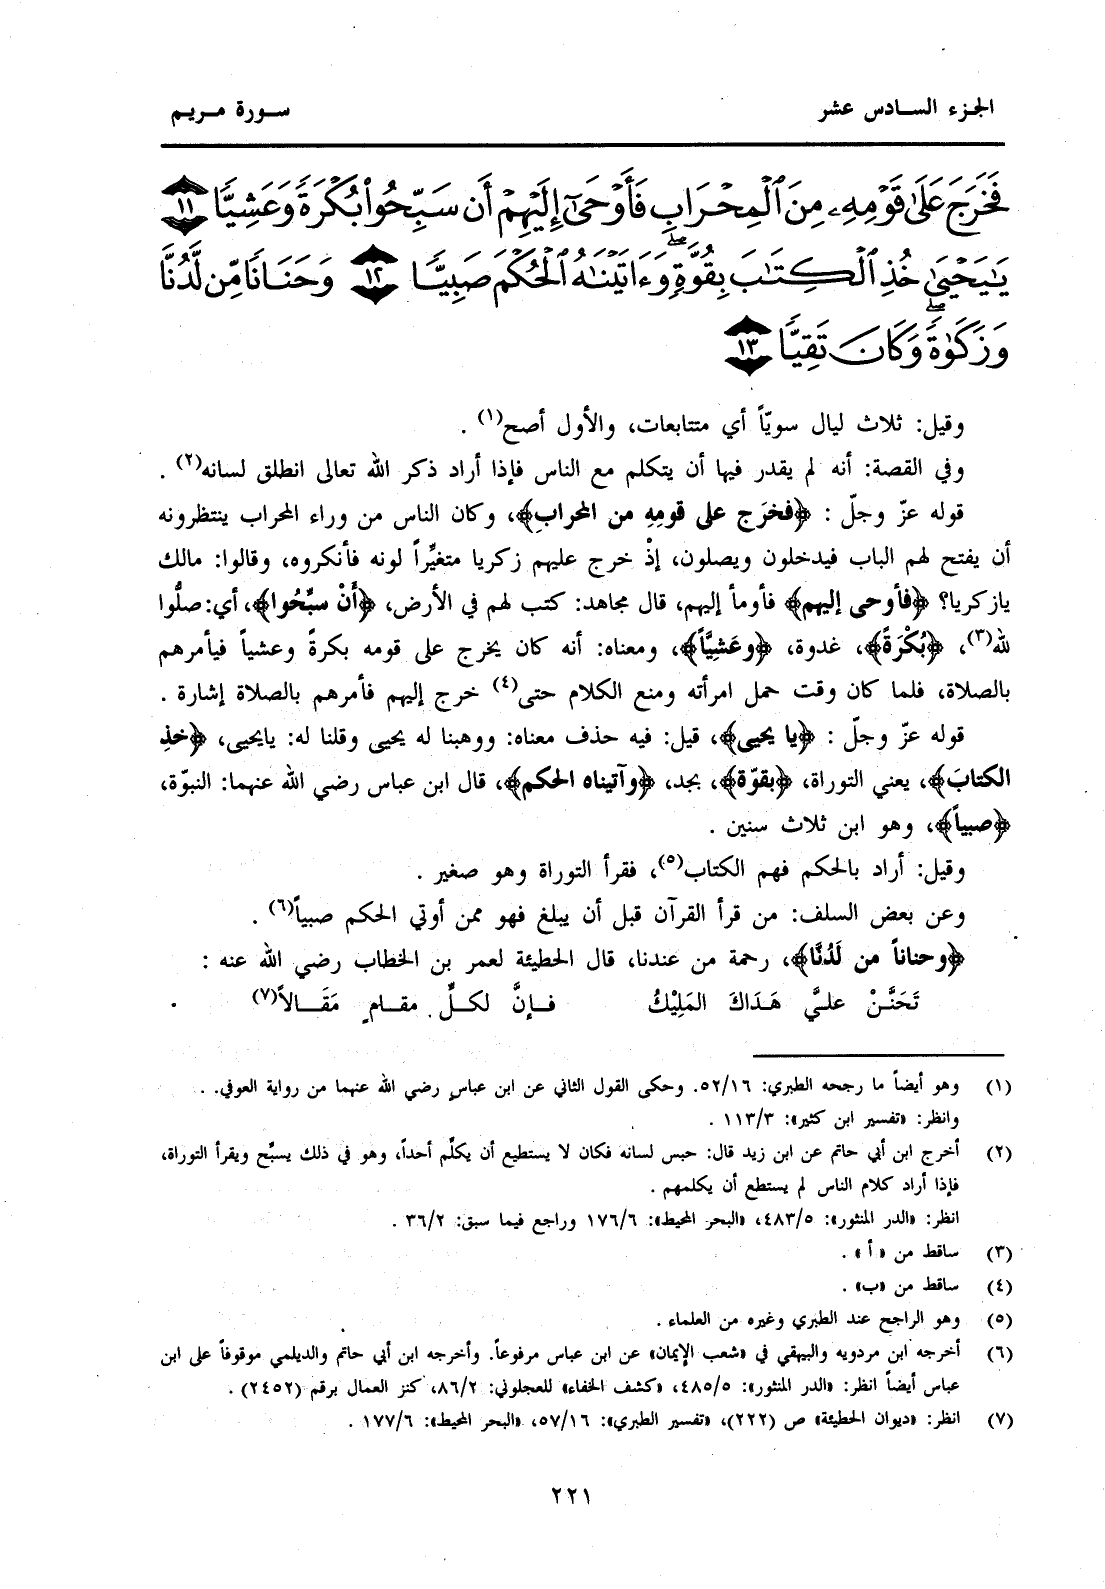 الجزء السادس عشر
سورة مريم
فَخَرَجَ عَلَىٰ قَوْمِهِۦ مِنَ ٱلْمِحْرَابِ فَأَوْحَىٰٓ إِلَيْهِمْ أَن سَبِّحُوا۟ بُكْرَةً وَعَشِيًّا ١١
يَٰيَحْيَىٰ خُذِ ٱلْكِتَٰبَ بِقُوَّةٍۖ وَءَاتَيْنَٰهُ ٱلْحُكْمَ صَبِيًّا ١٢ وَحَنَانًا مِّن لَّدُنَّا
وَزَكَوٰةًۖ وَكَانَ تَقِيًّا ١٣
وقيل: ثلاث ليال سويّاً أي متتابعات، والأول أصح(١) .
وفي القصة: أنه لم يقدر فيها أن يتكلم مع الناس فإذا أراد ذكر الله تعالى انطلق لسانه(٢) .
قوله عزّ وجلّ : ﴿فخرَج على قومِهِ من المحرابِ﴾، وكان الناس من وراء المحراب ينتظرونه
أن يفتح لهم الباب فيدخلون ويصلون، إذْ خرج عليهم زكريا متغيِّراً لونه فأنكروه، وقالوا: مالك
يازكريا؟ ﴿فأوحى إليهم﴾ فأومأ إليهم، قال مجاهد: كتب لهم في الأرض، ﴿أَنْ سبِّحُوا﴾، أي: صلُّوا
لله(٣)، ﴿بُكْرَةً﴾، غدوة، ﴿وعَشِيَّاً﴾، ومعناه: أنه كان يخرج على قومه بكرةً وعشياً فيأمرهم
بالصلاة، فلما كان وقت حمل امرأته ومنع الكلام حتى(٤) خرج إليهم فأمرهم بالصلاة إشارة .
قوله عزّ وجلّ : ﴿يا يحيى﴾، قيل: فيه حذف معناه: ووهبنا له يحيى وقلنا له: يايحيى، ﴿خذِ
الكتابَ﴾، يعني التوراة، ﴿بقوّة﴾، بجد، ﴿وآتيناه الحكم﴾، قال ابن عباس رضي الله عنهما: النبوّة،
﴿صبياً﴾، وهو ابن ثلاث سنين .
وقيل: أراد بالحكم فهم الكتاب(٥)، فقرأ التوراة وهو صغير .
وعن بعض السلف: من قرأ القرآن قبل أن يبلغ فهو ممن أوتي الحكم صبياً(٦) .
﴿وحناناً من لَدُنَّا﴾، رحمة من عندنا، قال الحطيئة لعمر بن الخطاب رضي الله عنه :
تَحَنَّنْ عليَّ هَدَاكَ المَلِيْكُ فإنَّ لكلِّ مقامٍ مَقَالاً(٧) .
(١) وهو أيضاً ما رجحه الطبري: ٥٢/١٦. وحكى القول الثاني عن ابن عباس رضي الله عنهما من رواية العوفي. .
وانظر: «تفسير ابن كثير»: ١١٣/٣ .
(٢) أخرج ابن أبي حاتم عن ابن زيد قال: حبس لسانه فكان لا يستطيع أن يكلّم أحداً، وهو في ذلك يسبّح ويقرأ التوراة،
فإذا أراد كلام الناس لم يستطع أن يكلمهم .
انظر: «الدر المنثور»: ٤٨٣/٥، «البحر المحيط»: ١٧٦/٦ وراجع فيما سبق: ٣٦/٢ .
(٣) ساقط من « أ » .
(٤) ساقط من «ب» .
(٥) وهو الراجح عند الطبري وغيره من العلماء .
(٦) أخرجه ابن مردويه والبيهقي في «شعب الإيمان» عن ابن عباس مرفوعاً. وأخرجه ابن أبي حاتم والديلمي موقوفاً على ابن
عباس أيضاً انظر: «الدر المنثور»: ٤٨٥/٥، «كشف الخفاء» للعجلوني: ٨٦/٢، كنز العمال برقم (٢٤٥٢) .
(٧) انظر: «ديوان الحطيئة» ص (٢٢٢)، «تفسير الطبري»: ٥٧/١٦، «البحر المحيط»: ١٧٧/٦ .
٢٢١